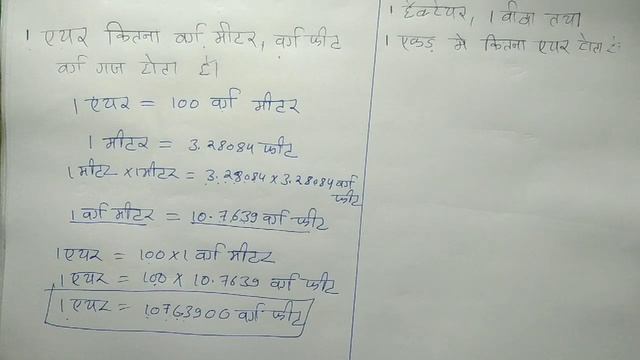 1 एयर कितना वर्ग मीटर, वर्ग फीट
वर्ग गज होता है।
1 एयर = 100 वर्ग मीटर
1 मीटर = 3.28084 फीट
1 मीटर × 1 मीटर = 3.28084 × 3.28084 वर्ग
फीट
1 वर्ग मीटर = 10.7639 वर्ग फीट
1 एयर = 100 × 1 वर्ग मीटर
1 एयर = 100 × 10.7639 वर्ग फीट
1 एयर = 10763900 वर्ग फीट
1 हेक्टेयर, 1 बीघा तथा
1 एकड़ में कितना एयर होता है: